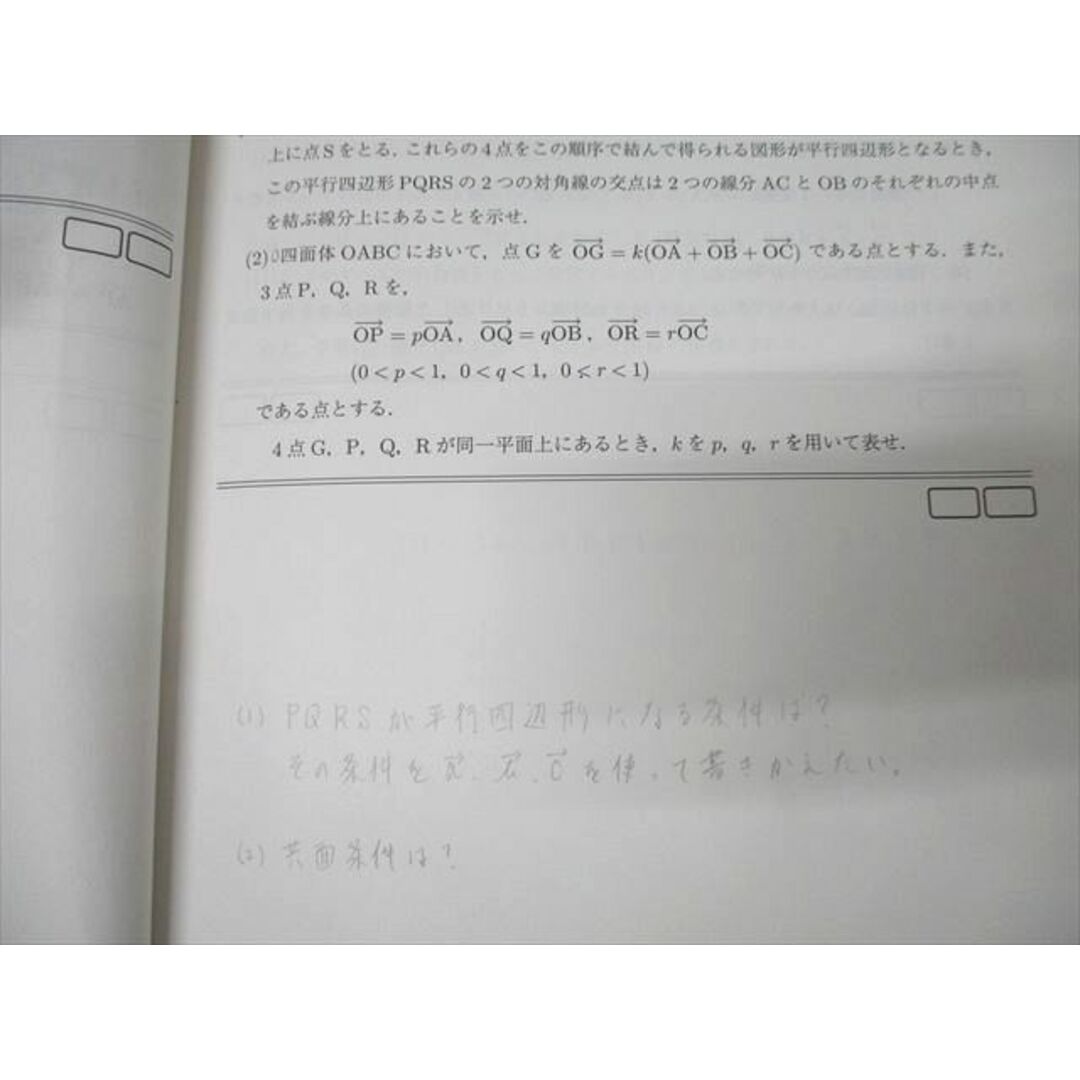 上に点Sをとる．これらの4点をこの順序で結んで得られる図形が平行四辺形となるとき，
この平行四辺形PQRSの2つの対角線の交点は2つの線分ACとOBのそれぞれの中点
を結ぶ線分上にあることを示せ．
(2) 四面体OABCにおいて，点Gを $\overrightarrow{OG}=k(\overrightarrow{OA}+\overrightarrow{OB}+\overrightarrow{OC})$ である点とする．また，
3点P，Q，Rを，
$\overrightarrow{OP}=p\overrightarrow{OA}$，$\overrightarrow{OQ}=q\overrightarrow{OB}$，$\overrightarrow{OR}=r\overrightarrow{OC}$
(0<p<1，0<q<1，0<r<1)
である点とする．
4点G，P，Q，Rが同一平面上にあるとき，kをp，q，rを用いて表せ．
(1) PQRSが平行四辺形になる条件は?
その条件を を使って書きかえたい。
(2) 共面条件は?